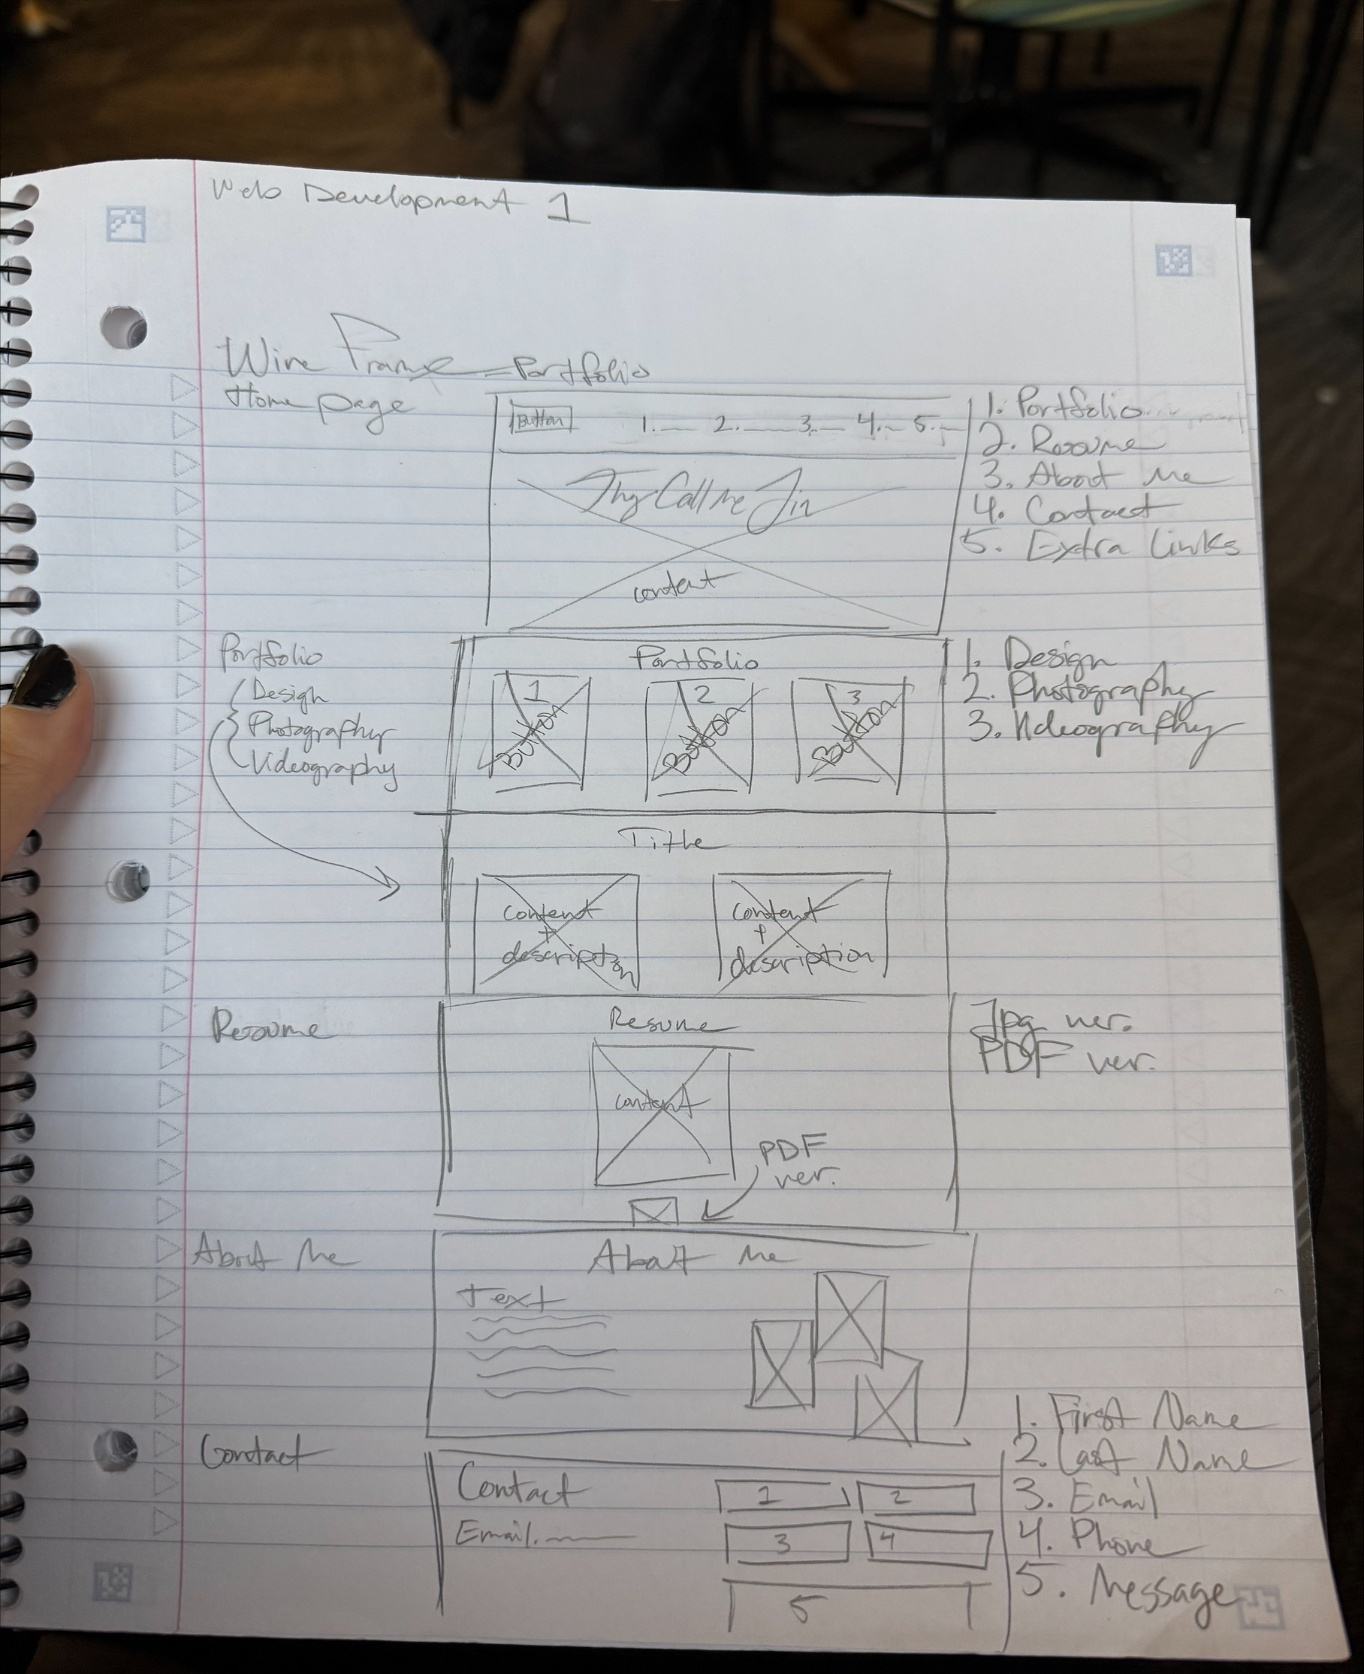 Web Development 1
Wire Frame = Portfolio
Home page
Button 1. 2. 3. 4. 5.
They Call Me Jin
content
1. Portfolio
2. Resume
3. About Me
4. Contact
5. Extra Links
Portfolio
Design
Photography
Videography
Portfolio
1 2 3
Button Button Button
1. Design
2. Photography
3. Videography
Title
content + description
content + description
Resume
Resume
content
PDF ver.
Jpg ver.
PDF ver.
About Me
About Me
Text
Contact
Contact
Email.
1 2
3 4
5
1. First Name
2. Last Name
3. Email
4. Phone
5. Message